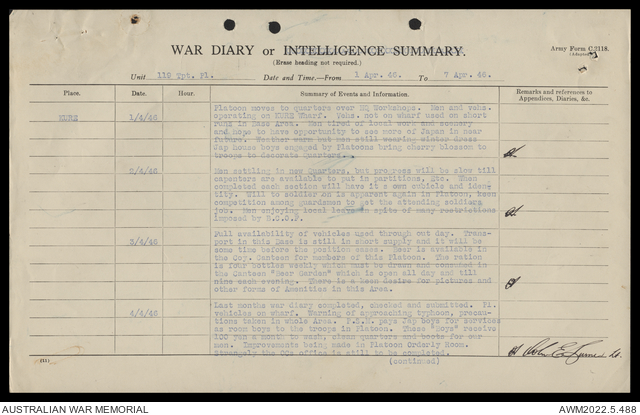 WAR DIARY or INTELLIGENCE SUMMARY.
(Erase heading not required.)
Army Form C.2118.
(Adapted)
Unit 119 Tpt. Pl. Date and Time.—From 1 Apr. 46. To 7 Apr. 46.
Place. Date. Hour. Summary of Events and Information. Remarks and references to Appendices, Diaries, &c.
KURE 1/4/46 Platoon moves to quarters over HQ Workshops. Men and vehs.
operating on KURE Wharf. Vehs. not on wharf used on short
runs in Base Area. Men tired of local work and scenery
and hope to have opportunity to see more of Japan in near
future. Weather warm but men still wearing winter dress
Jap house boys engaged by Platoons bring cherry blossom to
troops to decorate Quarters.
2/4/46 Men settling in new Quarters, but progress will be slow till
capenters are available to put in partitions, Etc. When
completed each section will have it s own cubicle and iden-
tity. Will to soldier on is apparent again in Platoon, keen
competition among guardsmen to get the attending soldiers
job. Men enjoying local leave in spite of many restrictions
imposed by B.C.O.F.
3/4/46 Full availability of vehicles used through out day. Trans-
port in this Base is still in short supply and it will be
some time before the position eases. Beer is available in
the Coy. Canteen for members of this Platoon. The ration
is four bottles weekly which must be drawn and consumed in
the Canteen "Beer Garden" which is open all day and till
nine each evening. There is a keen desire for pictures and
other forms of Amenities in this Area.
4/4/46 Last months war diary completed, checked and submitted. Pl.
vehicles on wharf. Warning of approaching typhoon, precau-
tions taken in whole Area. pays Jap boys for services
as room boys to the troops in Platoon. These "Boys" receive
100 yen a month to each, clean quarters and boots for our
men. Improvements being made in Platoon Orderly Room.
Strangely the OCs office is still to be completed.
(continued)
AUSTRALIAN WAR MEMORIAL AWM2022.5.488